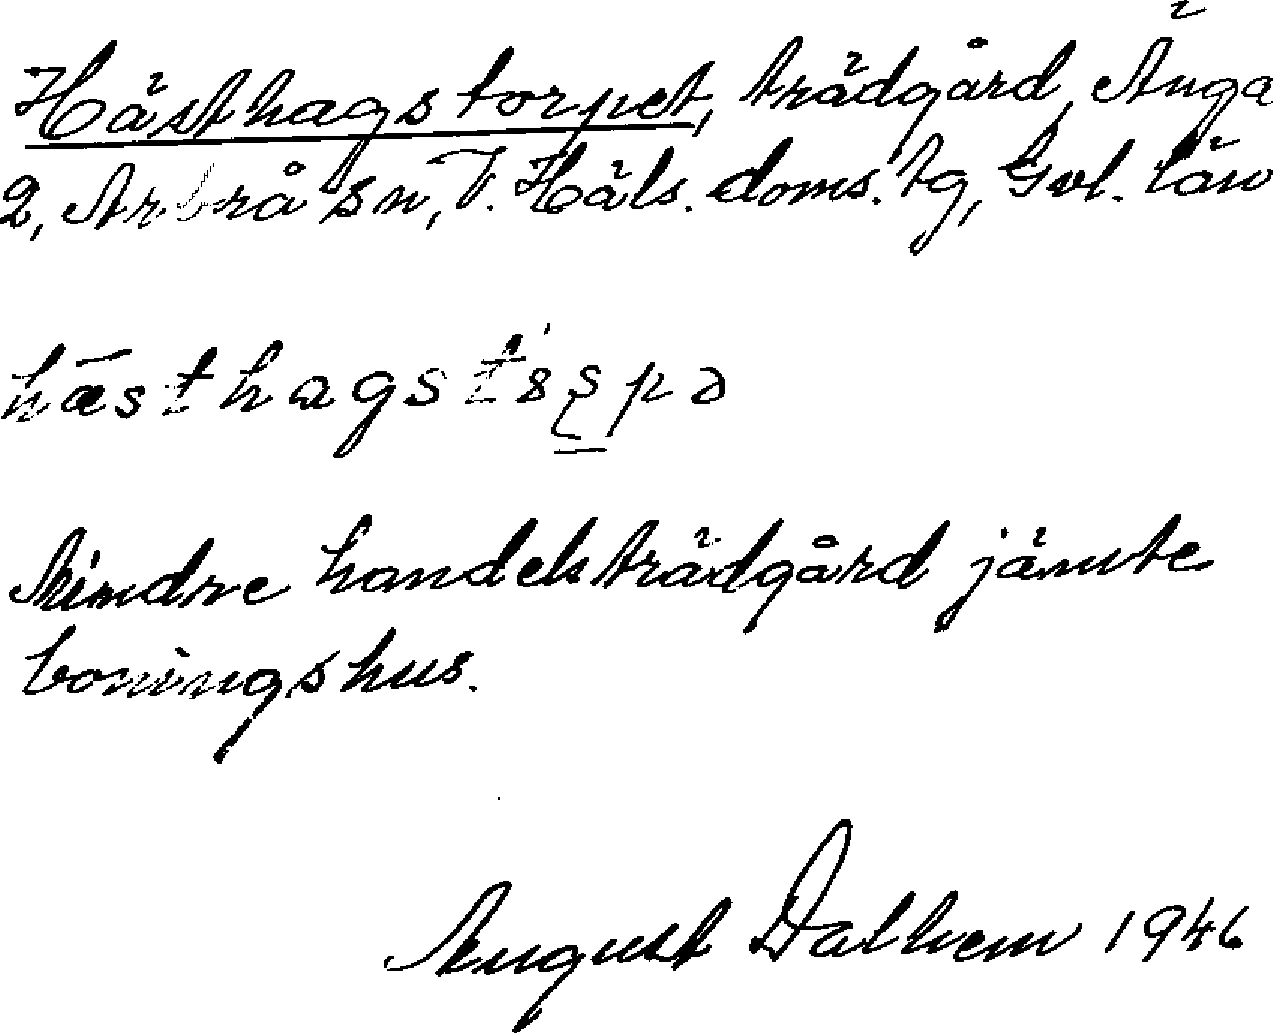 Hästhagstorpet, trädgård, Änga
2, Arbrå sn, V. Häls. doms. tg, Gvl. län
Mindre handelsträdgård jämte
boningshus.
August Dalhem 1946